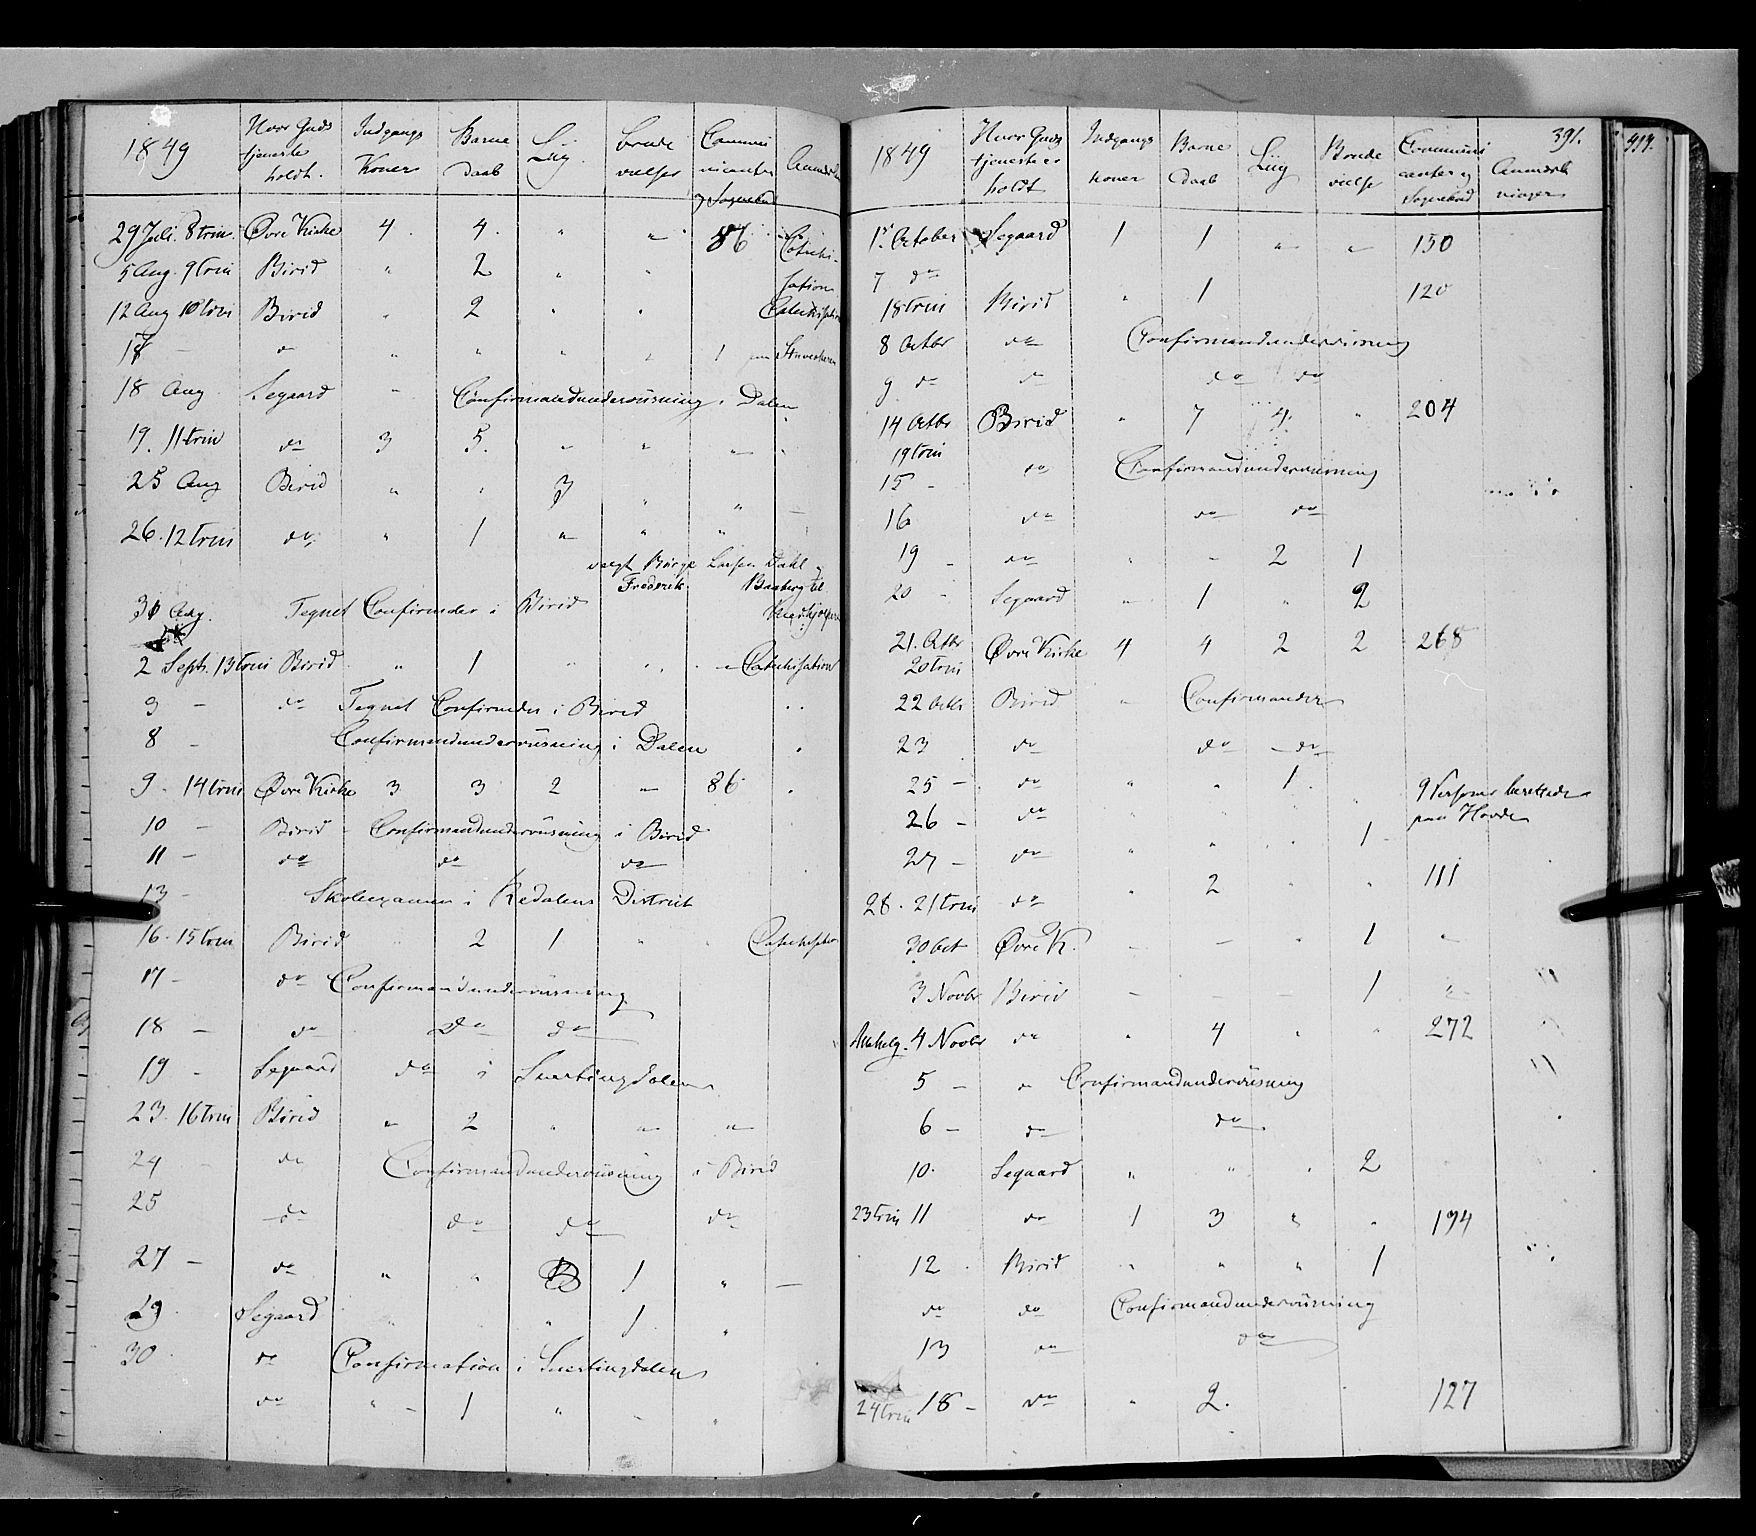 1849 Hvor Guds tjeneste holdt. Indgangs Koner Barne Daab Liig. brude vielser Communicanter og Sognebud
29 Juli. 8 trin. Øvre Kirke 4. 4. " " 86
5 Aug. 9 trin Birid " 2 " " Catechisation
12 Aug 10 trin Birid " 2 " " Catechisation
18 - do " " " " 1
18 Aug Segaard - Confirmandunderviisning i Dalen
19. 11 trin do 3 5. " " "
25 Aug Birid " " 3 " " -
26. 12 trin do " 1 " " "
valgt Børge Larsen Dahl og
Frederik Baaberg til
31 Aug. Tegnet Confirmder i Birid Medhjelpere
2 Septr. 13 trin Birid " 1 " " " Catechisation
3 - do Tegnet Confirmder i Birid
8 - Confirmandunderviisning i Dalen
9. 14 trin Øvre Kirke 3 3 2 " 86
10 - Birid - Confirmandunderviisning i Birid
11 - do do do
13 - Skoleexamen i Redalens District
16. 15 trin Birid 2 1 " "
17 - do Confirmandunderviisning
18 - do do do
19 - Segaard do i Snertingdalen
23. 16 trin Birid " 2 " " "
24 - do Confirmandunderviisning i Birid
25 do do do do
27 - do " " 1 " -
29 Segaard " " " 1 "
30 do Confirmation i Snertingdalen
do " - 1 " - "
391.
1849 Hvor Guds tjeneste er holdt Indgangs koner Barne daab Liig Brude vielse Communicanter og Sognebud Anmærkninger
1ste October Segaard 1 1 " " 150
7 do
18 trin Birid " 1 120
8 Octbr do Confirmandunderviisning
9 do do do do
14 Octbr Birid " 7 4. " 204
19 trin
15 - do Confirmandunderviisning
16 do do do
19 - do " - 2 1
20 - Segaard " 1 " 2
21. Octbr Øvre Kirke 4 4 2 2 268
20 trin
22 Octbr Birid " Confirmander
23 do do do
25 - do " " 1. " 9 Personer berettede
26 - do paa Hovde
27 - do " " " 1 -
28. 21 trin do " 2 " " 111
30 Oct Øvre K. - - " 1 "
3 Novbr Birid - - - 1 "
Allehelg. 4 Novbr do " 4 " " 272
5 - do Confirmandunderviisning
6 - do do
10. Segaard " " " 2
23 trin 11 do 1 3 " " 194
12. Birid " " " 1
do do Confirmandunderviisning
13 do do
24 trin 18 - do " 2. 127
414.